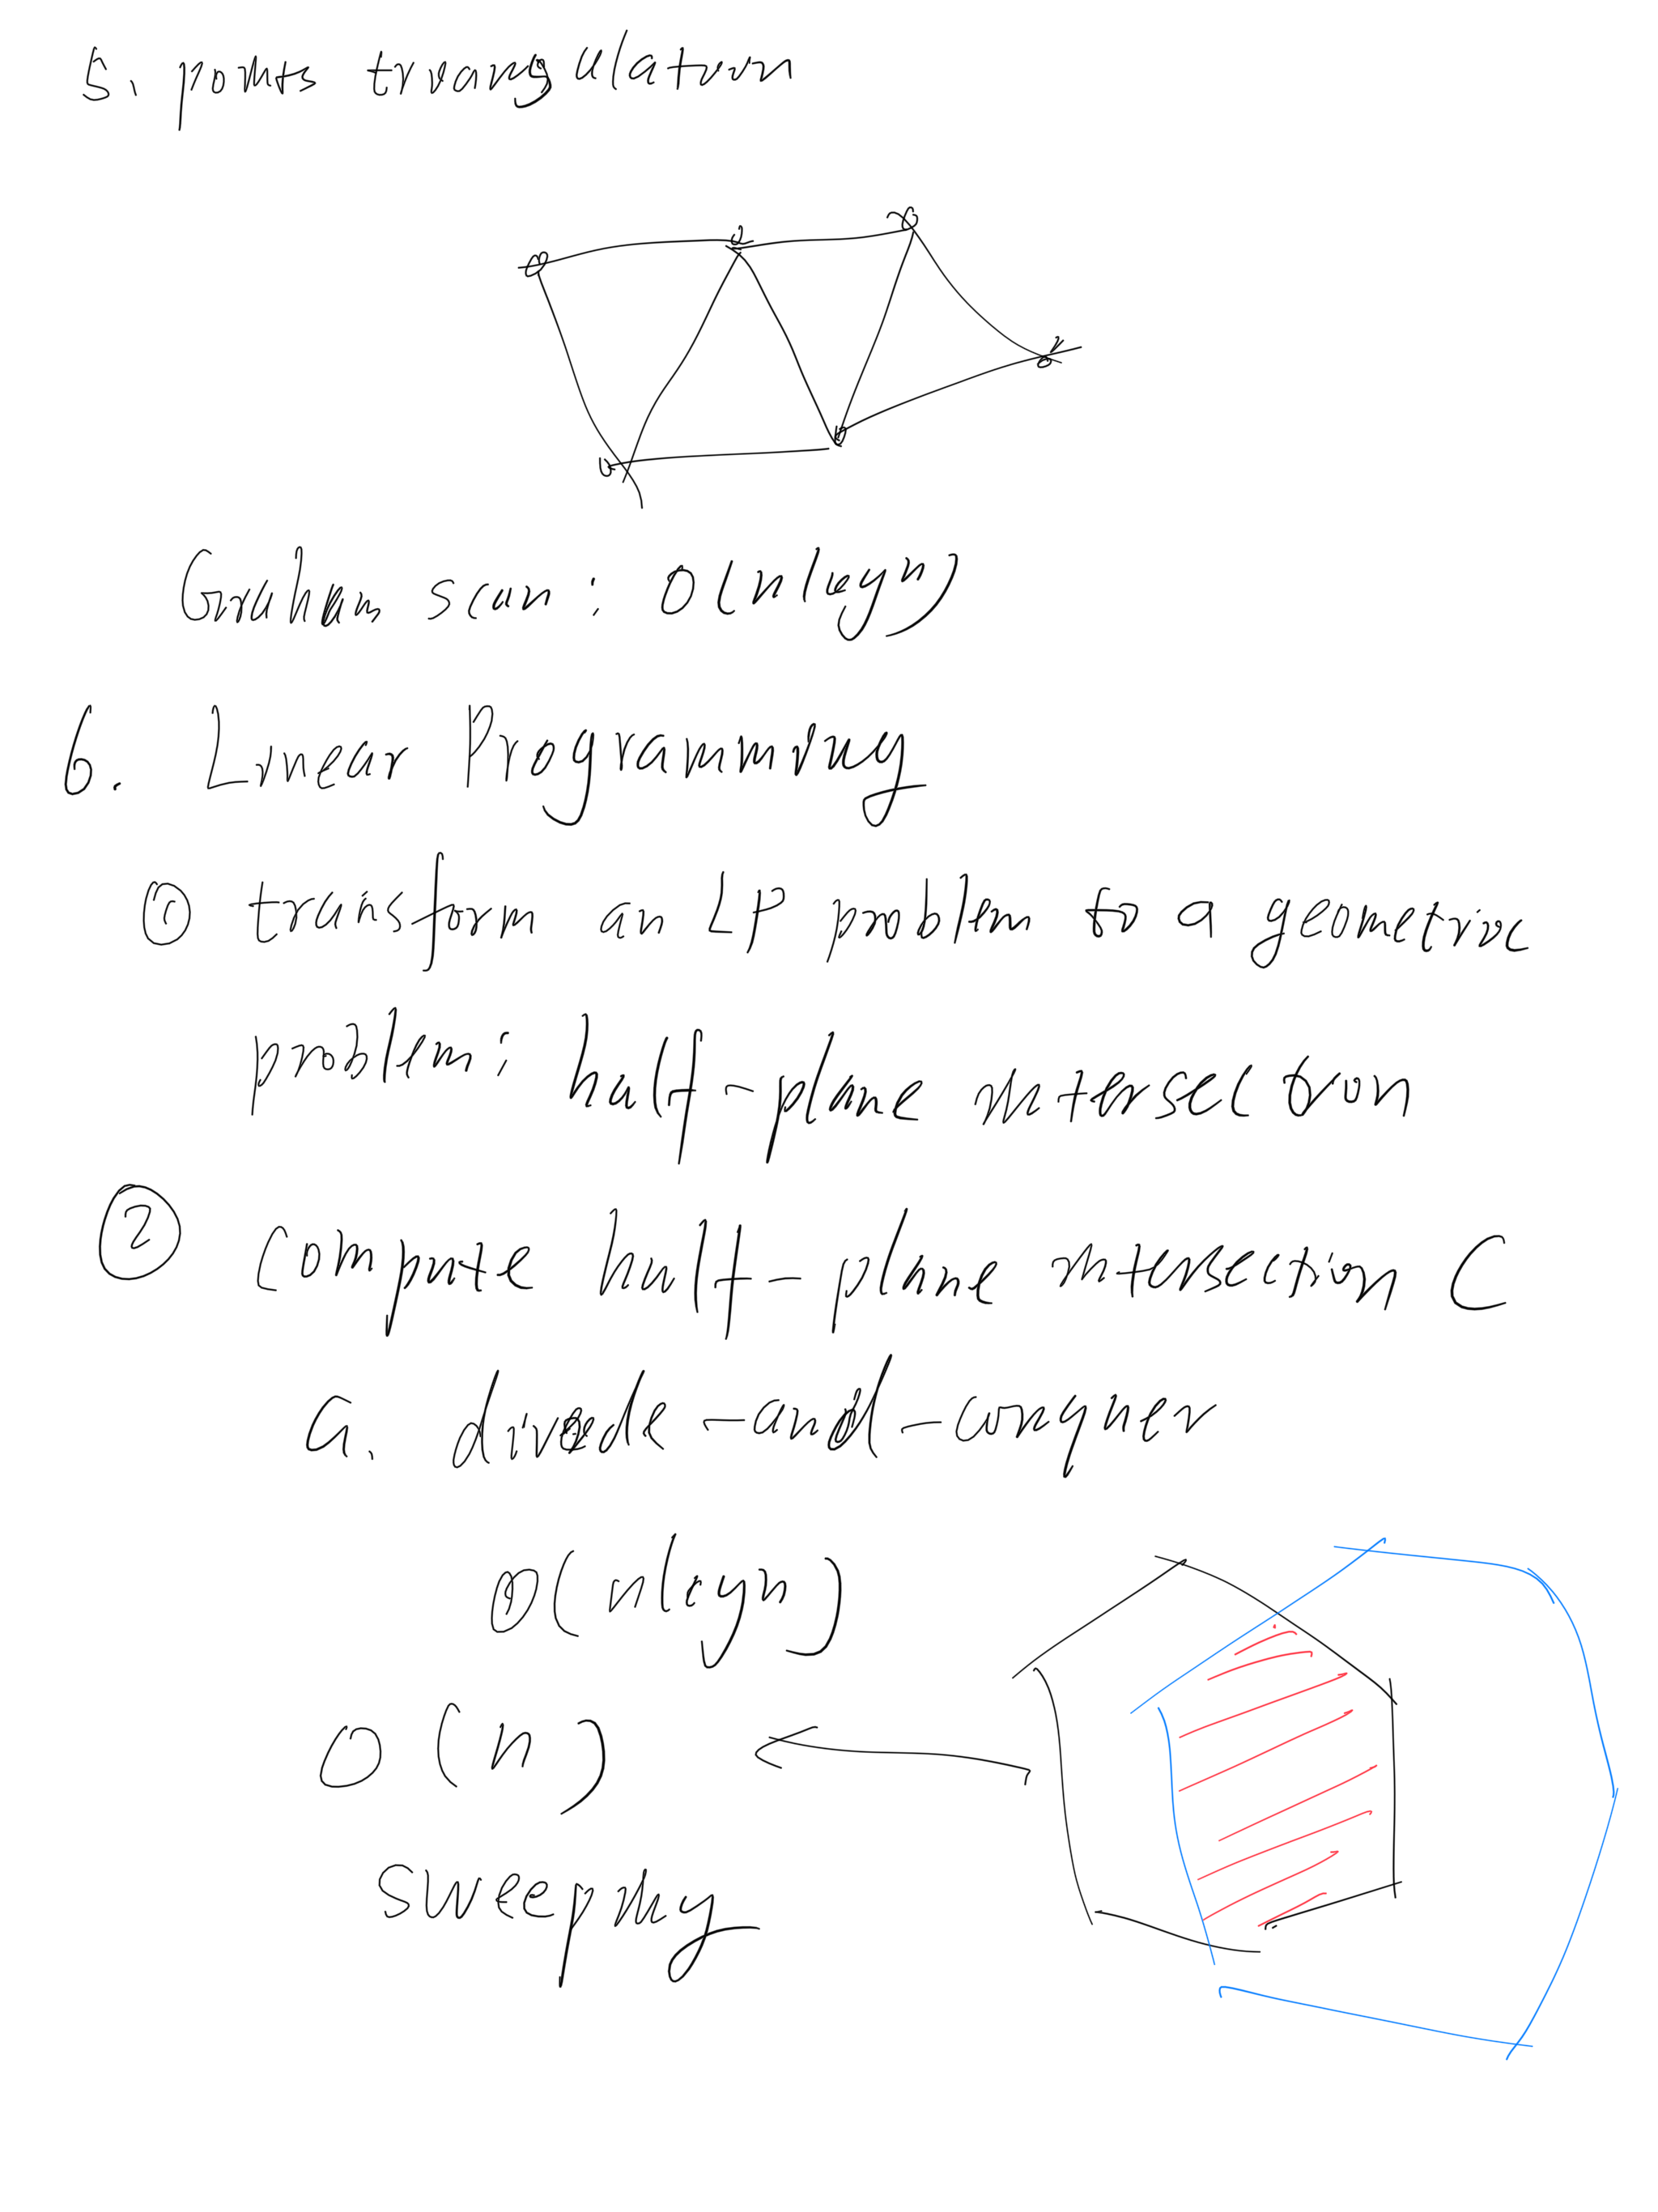 5. points triangulation
Graham scan: O(nlogn)
6. Linear Programming
① transform an LP problem to a geometric
problem: half-plane intersection
② compute half-plane intersection C
a. divide-and-conquer
O(nlogn)
O(n)
sweeping